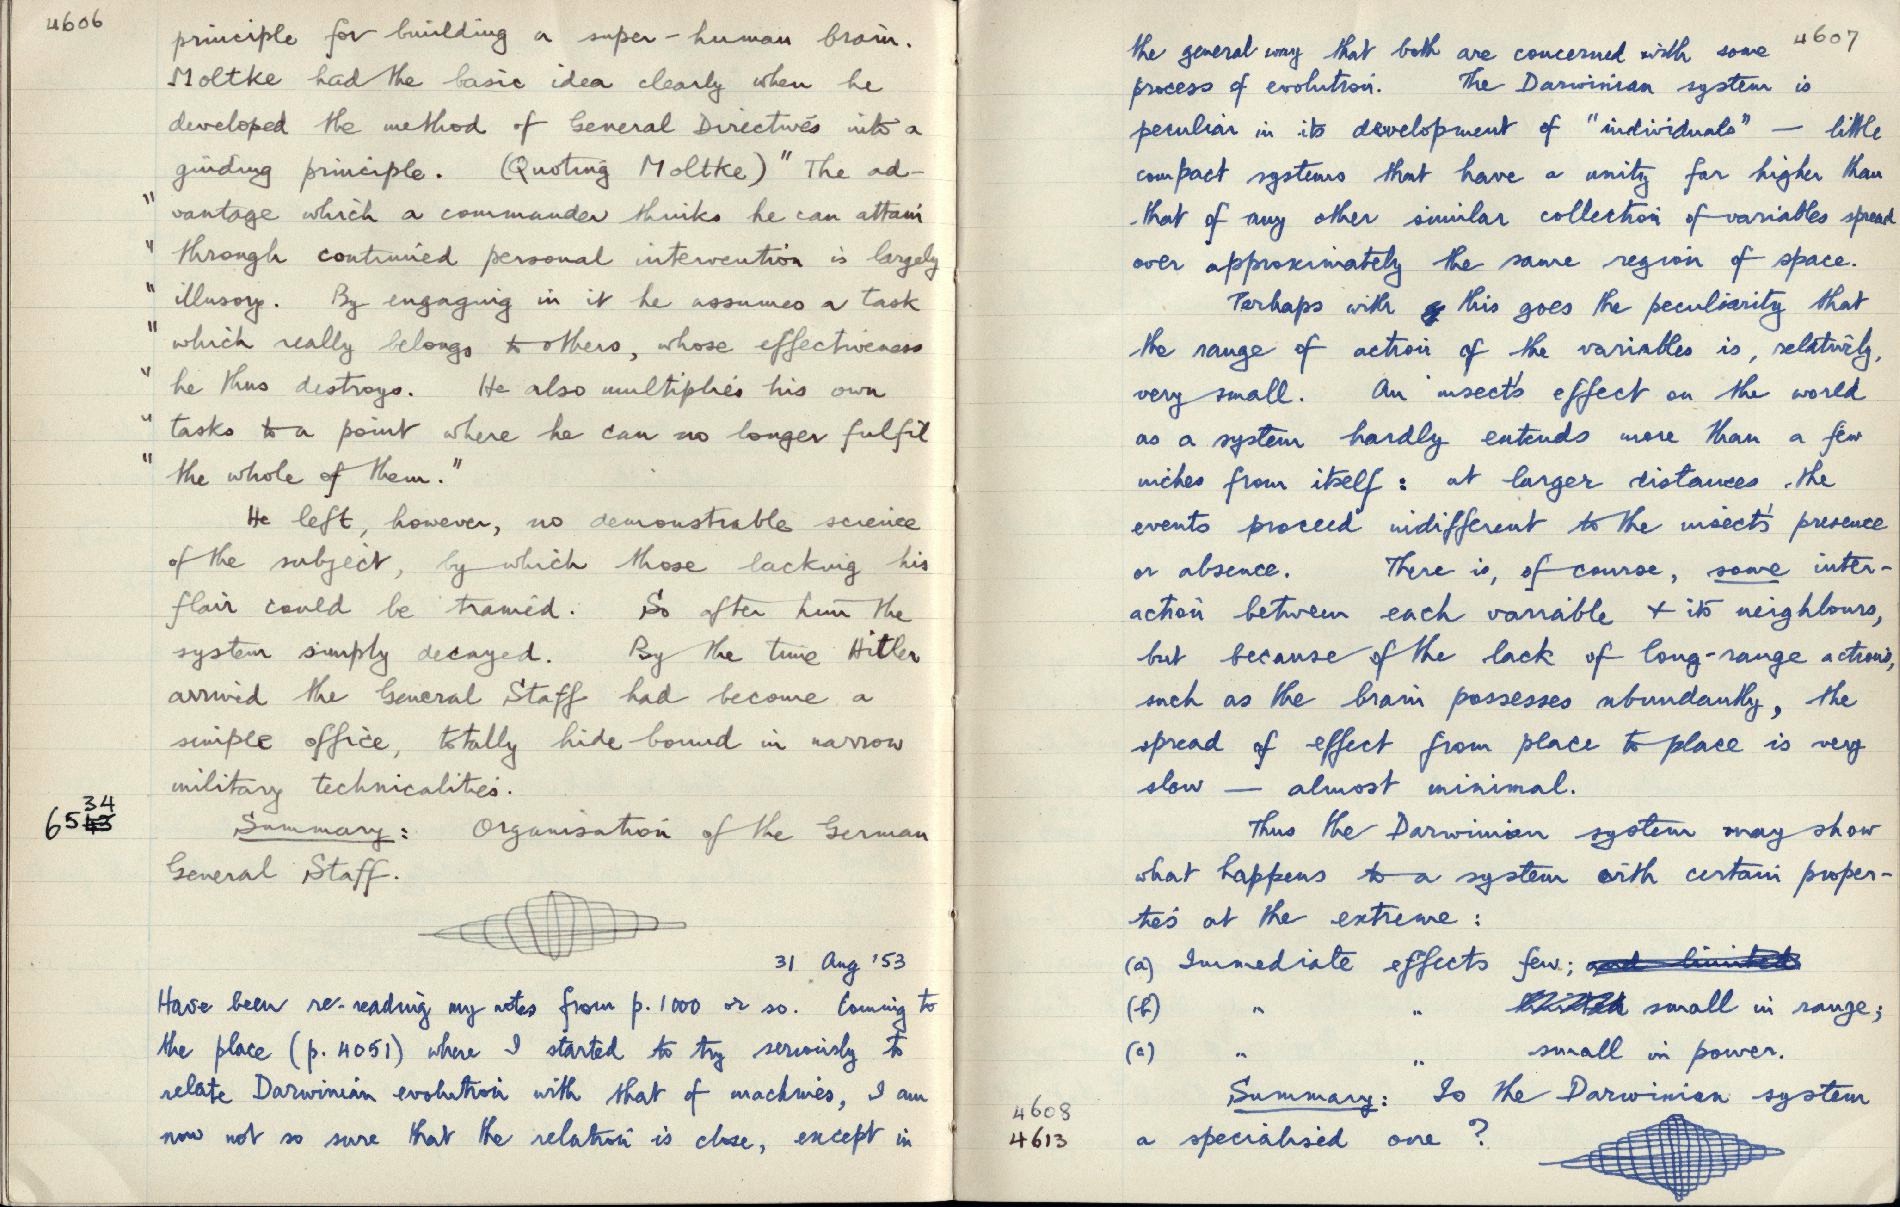 4606
principle for building a super-human brain.
Moltke had the basic idea clearly when he
developed the method of General Directives into a
guiding principle. (Quoting Moltke) " The ad-
" vantage which a commander thinks he can attain
" through continued personal intervention is largely
" illusory. By engaging in it he assumes a task
" which really belongs to others, whose effectiveness
" he thus destroys. He also multiplies his own
" tasks to a point where he can no longer fulfil
" the whole of them."
He left, however, no demonstrable science
of the subject, by which those lacking his
flair could be trained. So after him the
system simply decayed. By the time Hitler
arrived the General Staff had become a
simple office, totally hide-bound in narrow
military technicalities.
34
6543
Summary: Organisation of the German
General Staff.
31 Aug '53
Have been re-reading my notes from p. 1000 or so. Coming to
the place (p. 4051) where I started to try seriously to
relate Darwinian evolution with that of machines, I am
now not so sure that the relation is close, except in
4607
the general way that both are concerned with some
process of evolution. The Darwinian system is
peculiar in its development of "individuals" — little
compact systems that have a unity far higher than
that of any other similar collection of variables spread
over approximately the same region of space.
Perhaps with this goes the peculiarity that
the range of action of the variables is, relatively,
very small. An insect's effect on the world
as a system hardly extends more than a few
inches from itself: at larger distances the
events proceed indifferent to the insect's presence
or absence. There is, of course, some inter-
action between each variable + its neighbours,
but because of the lack of long-range actions,
such as the brain possesses abundantly, the
spread of effect from place to place is very
slow — almost minimal.
Thus the Darwinian system may show
what happens to a system with certain proper-
ties at the extreme:
(a) Immediate effects few; and limited
(b) " " limited small in range;
(c) " " small in power.
Summary: Is the Darwinian system
a specialised one?
4608
4613